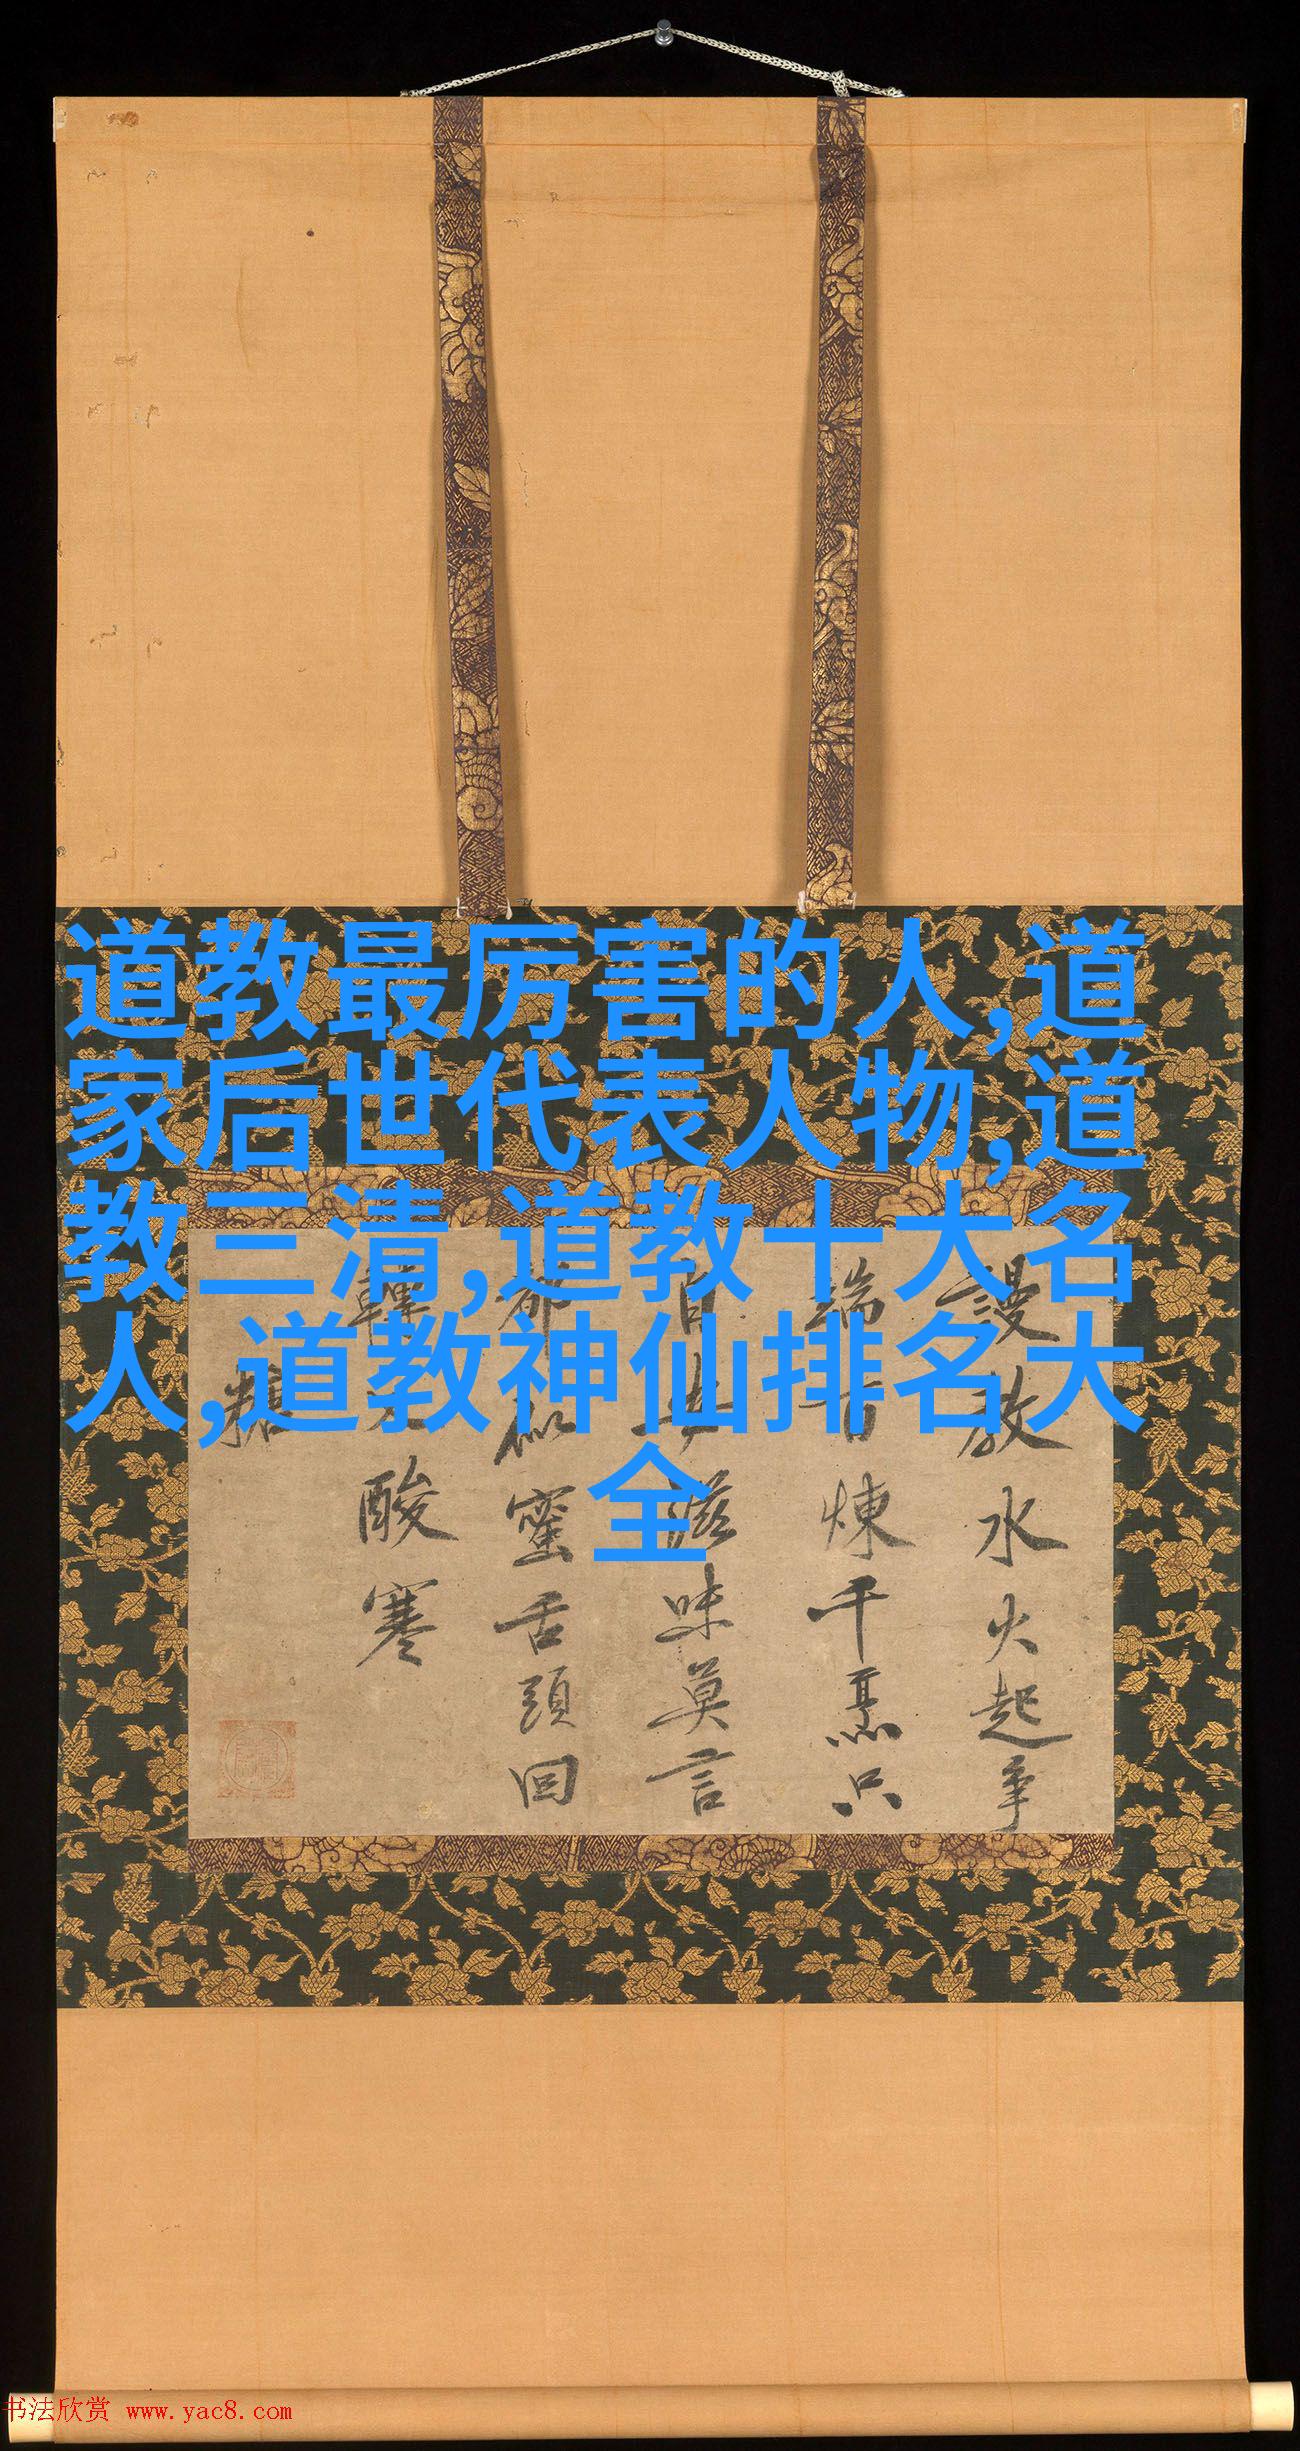 道教最厉害的人,道
家后世代表人物,道
教三清,道教十大名
人,道教神仙排名大
全
謾教水火起爭
端百煉千烹只
自滋味莫言
都似蜜舌頭回
轉酸寒
糖
书法欣赏 www.yac8.com